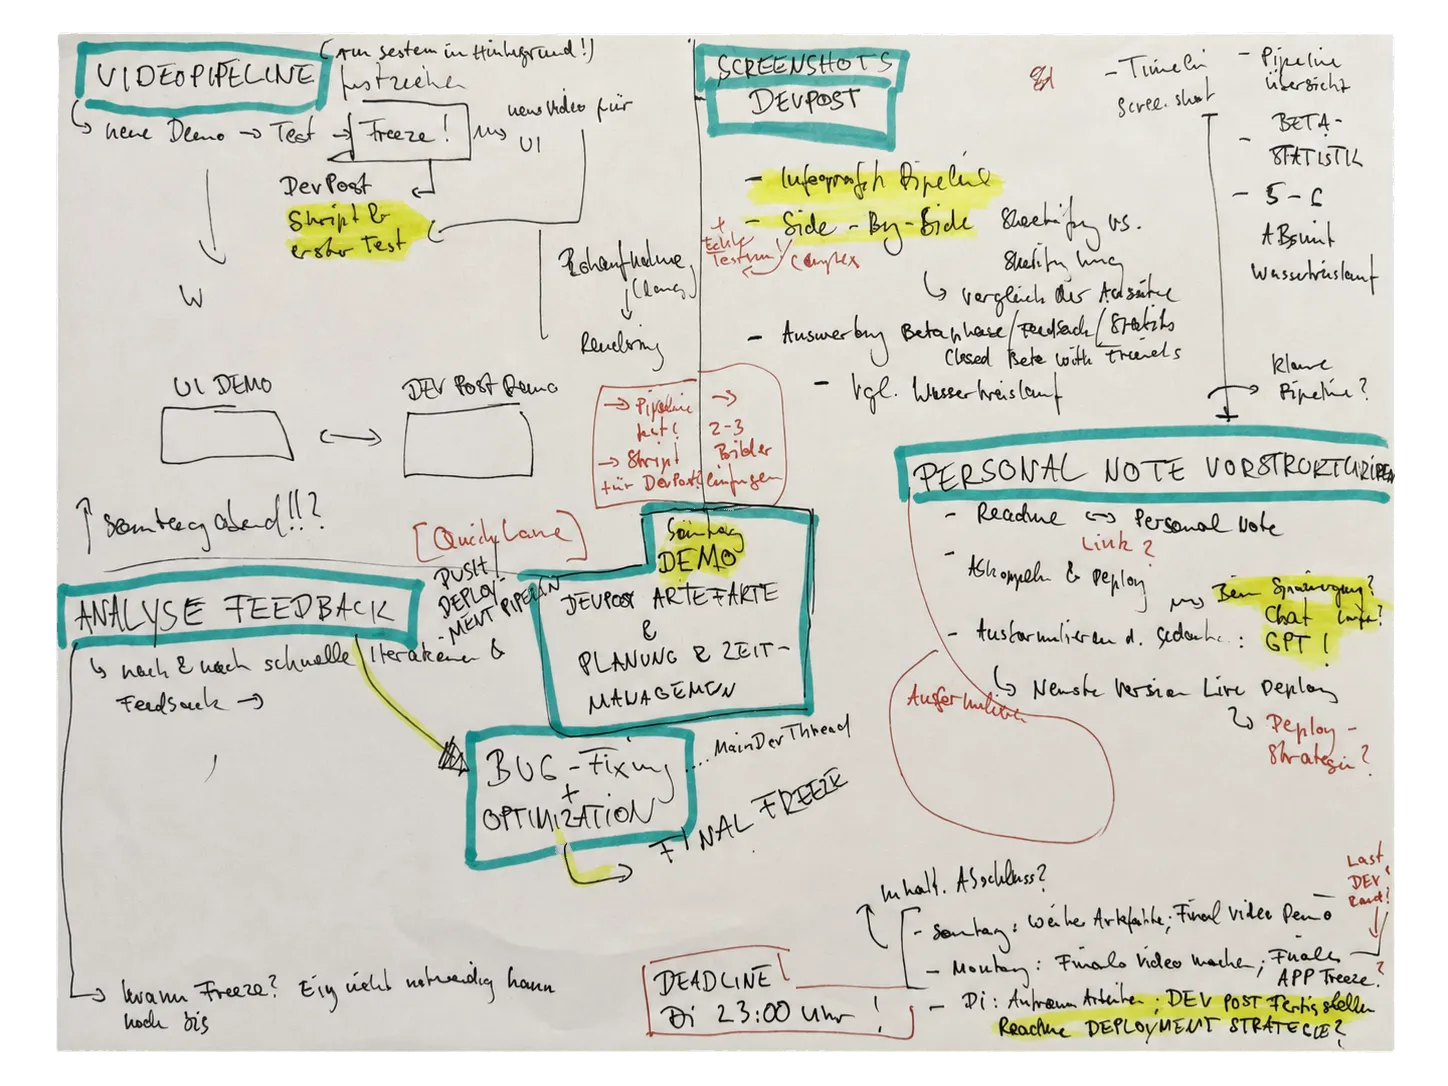 VIDEOPIPELINE
(Am system in Hintergrund!)
festziehen
↳ neue Demo → Test → Freeze!
neues Video für
UI
DevPost
Skript &
erster Test
W
Rohaufnahme
(lang)
↓
Rendering
UI DEMO
DEV POST Demo
↑ Sonntag abend!!?
SCREENSHOTS
DEVPOST
- Infografik Pipeline
- Side-By-Side
Sketchify vs.
+
Echte
Testrun!
Complex
↳ Vergleich der Ansätze
- Auswertung Betaphase/Feedback/Statistik
Closed Beta with Friends
- Vgl. Wasserkreislauf
- Timeline
Screenshot
- Pipeline
übersicht
- BETA-
STATISTIK
- 5-6
Wasserkreislauf
Klare
Pipeline?
→ Pipeline
fest!
→ Skript
für DevPost
→
2-3
Bilder
einfügen
PERSONAL NOTE VORSTRUKTURIEREN
- Readme ↔ Personal Note
Link?
- Abkoppeln & Deploy
Chat
- Ausformulieren d. Gedanken:
GPT!
↳ Neuste Version Live Deploy
Deploy-
Strategie?
Ausformulieren
[Quick Lane]
PUSH
DEPLOY-
MENT PIPELINE
Sonntag
DEMO
DEVPOST ARTEFAKTE
&
PLANUNG & ZEIT-
MANAGEMEN
ANALYSE FEEDBACK
↳ nach & nach schnelle Iterationen &
Feedback →
BUG-Fixing
+
OPTIMIZATION
.... MainDevThread
FINAL FREEZE
→ Wann Freeze? Eig nicht notwendig kann
noch bis
DEADLINE
Di 23:00 Uhr !
Inhalt. Abschluss?
Last
DEV
- Sonntag: Weitere Artefakte; Final Video Demo
- Montag: Finales Video machen; Finales
APP Freeze?
- Di: Aufräum Arbeiten; DEV POST Fertigstellen
Readme DEPLOYMENT STRATEGIE?